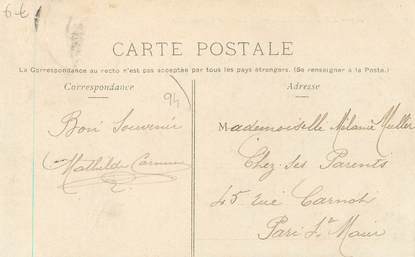 6 €
CARTE POSTALE
La Correspondance au recto n'est pas acceptée par tous les pays étrangers. (Se renseigner à la Poste.)
Correspondance
94
Bon Souvenir
Mathilde
Adresse
Mademoiselle Mélanie Muller
Chez ses Parents
45 rue Carnot